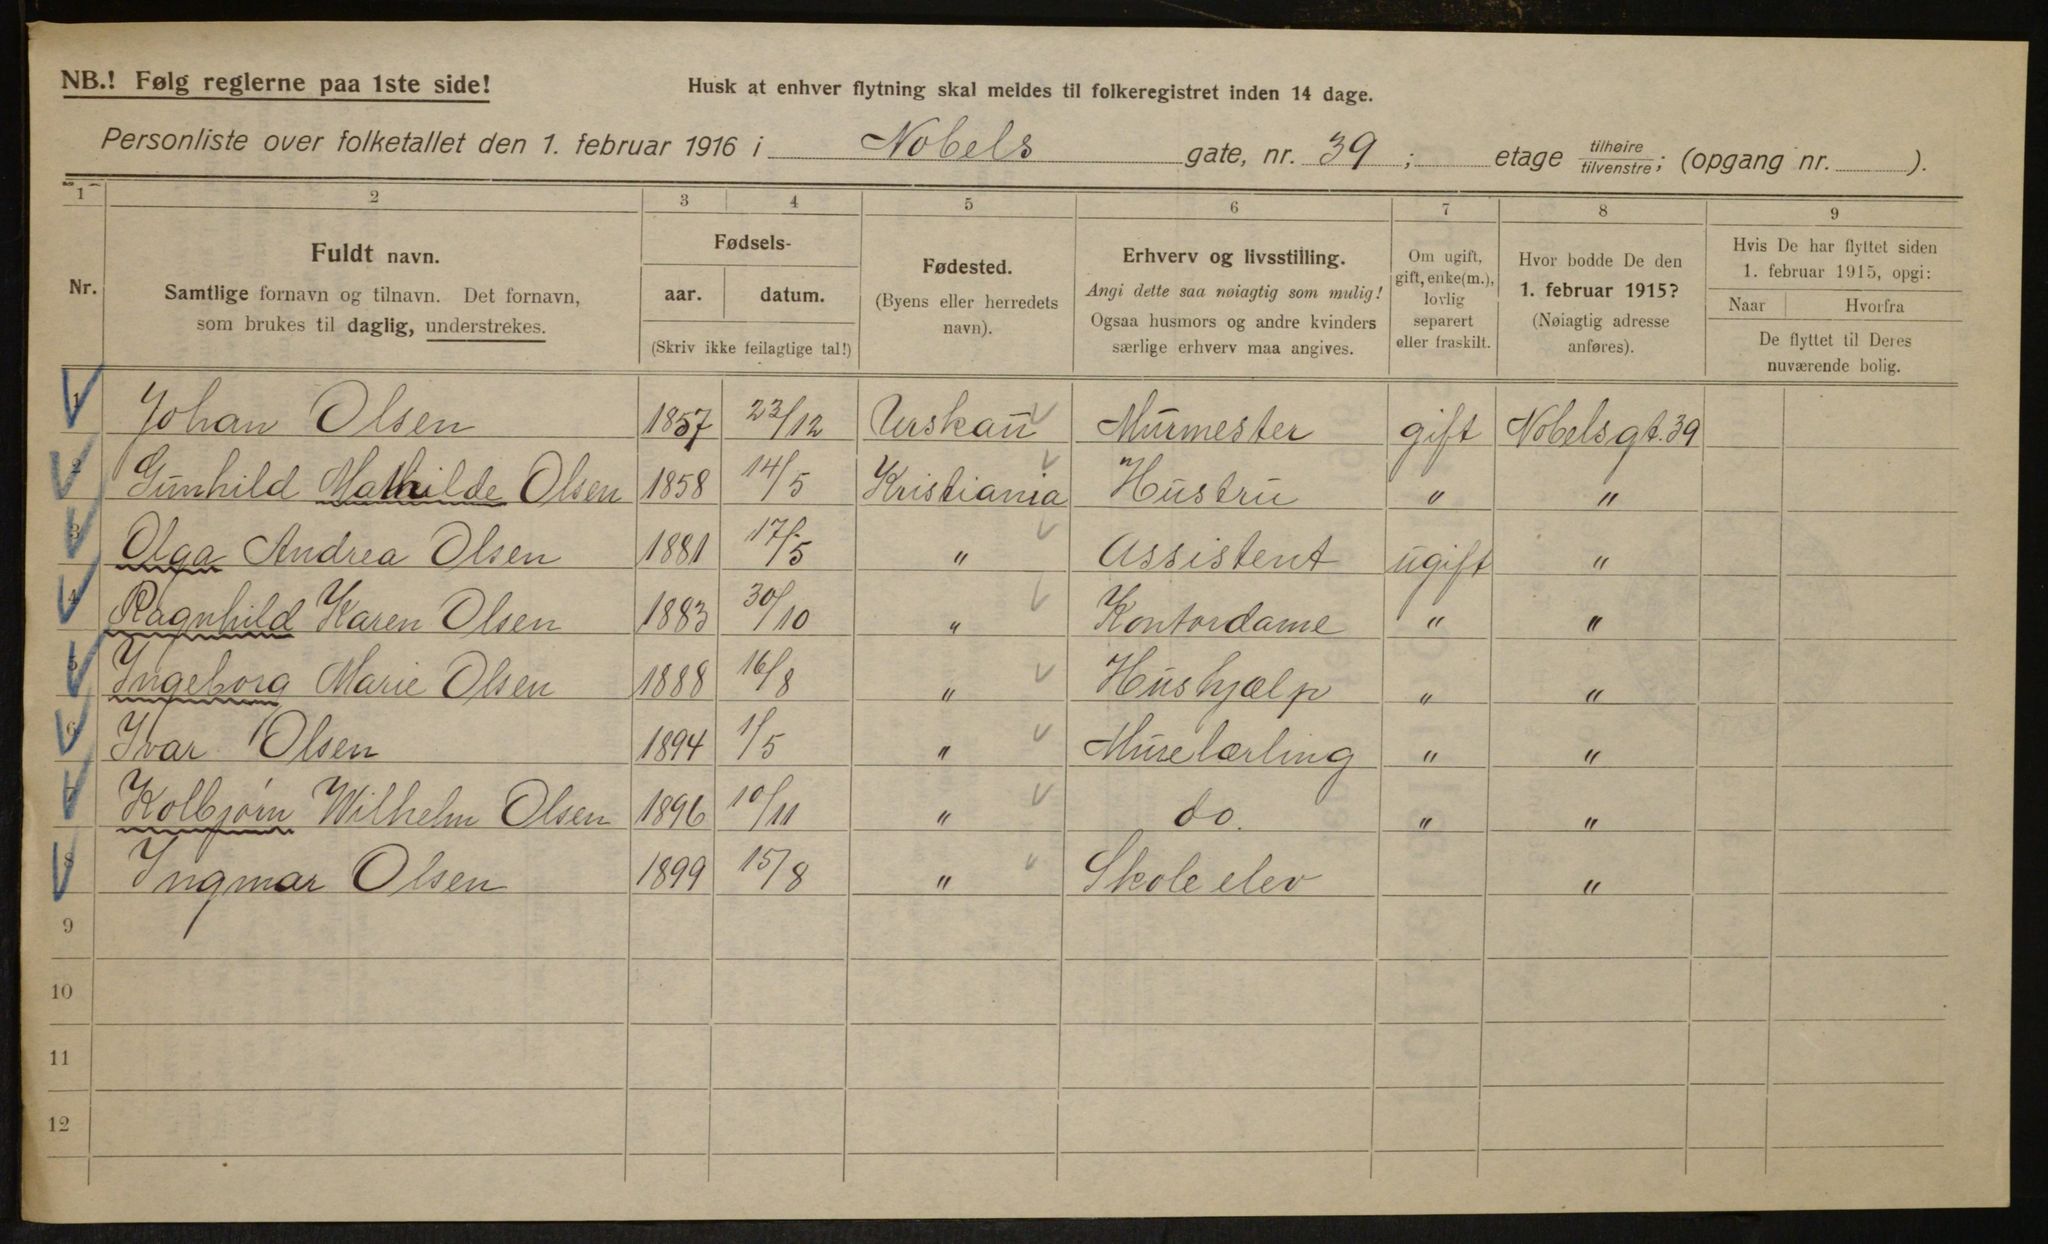 NB.! Følg reglerne paa 1ste side!
Husk at enhver flytning skal meldes til folkeregistret inden 14 dage.
Personliste over folketallet den 1. februar 1916 i Nobels gate, nr. 39; etage tilhøire/tilvenstre; (opgang nr. ).
1 2 3 4 5 6 7 8 9
Nr.
Fuldt navn.
Samtlige fornavn og tilnavn. Det fornavn,
som brukes til daglig, understrekes.
Fødsels-
aar. datum.
(Skriv ikke feilagtige tal!)
Fødested.
(Byens eller herredets
navn).
Erhverv og livsstilling.
Angi dette saa nøiagtig som mulig!
Ogsaa husmors og andre kvinders
særlige erhverv maa angives.
Om ugift,
gift, enke(m.),
lovlig
separert
eller fraskilt.
Hvor bodde De den
1. februar 1915?
(Nøiagtig adresse
anføres).
Hvis De har flyttet siden
1. februar 1915, opgi:
Naar Hvorfra
De flyttet til Deres
nuværende bolig.
1 Johan Olsen 1857 23/12 Urskau Murmester gift Nobelsgt. 39
2 Gunhild Mathilde Olsen 1858 14/5 Kristiania Hustru " "
3 Olga Andrea Olsen 1881 17/5 " Assistent ugift "
4 Ragnhild Karen Olsen 1883 30/10 " Kontordame " "
5 Ingeborg Marie Olsen 1888 16/8 " Hushjælp " "
6 Ivar Olsen 1894 1/5 " Murelærling " "
7 Kolbjørn Wilhelm Olsen 1896 10/11 " do. " "
8 Ingmar Olsen 1899 15/8 " Skoleelev "
9
10
11
12